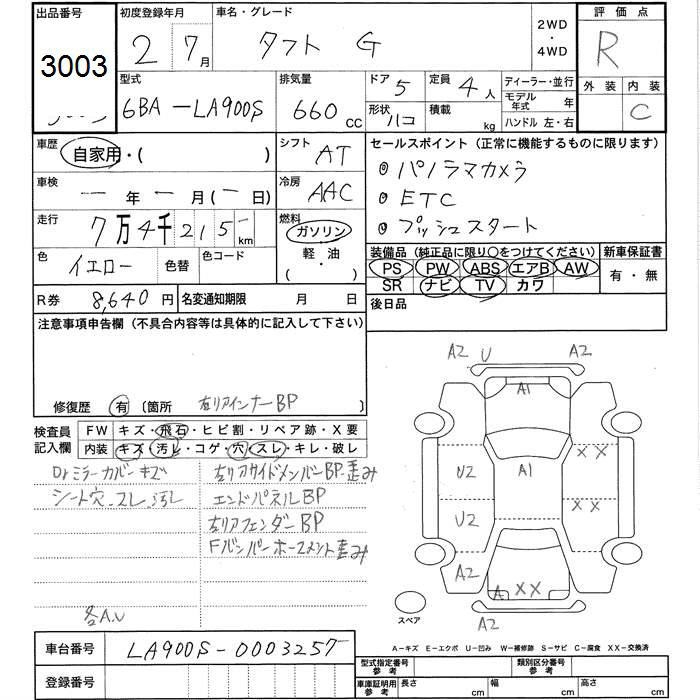 出品番号
3003
初度登録年月
2 7月
車名・グレード
タフト G
2WD
・
4WD
評価点
R
外装 内装
C
型式
6BA-LA900S
排気量
660 CC
ドア 5
形状 ハコ
定員 4人
積載 kg
ディーラー・並行
モデル年式 年
ハンドル 左・右
車歴
自家用・( )
シフト AT
車検
ー 年 ー 月(ー日)
冷房 AAC
走行
7万4千215- km
燃料
ガソリン
(軽・油)
・( )
色 イエロー 色替 色コード
R券 8,640円 名変通知期限 月 日
セールスポイント(正常に機能するものに限ります)
◎パノラマカメラ
◎ETC
◎プッシュスタート
装備品(純正品に限り○をつけてください)
PS PW ABS エアB AW
SR ナビ TV カワ
新車保証書
有・無
後日品
注意事項申告欄(不具合内容等は具体的に記入して下さい)
修復歴 有 〔箇所 右リアインナーBP 〕
検査員記入欄
FW キズ・飛石・ヒビ割・リペア跡・X要
内装 キズ・汚レ・コゲ・穴・スレ・キレ・破レ
Drミラーカバーキズ
シート穴.スレ.汚レ
各A.U
右リアサイドメンバーBP.歪み
エンドパネルBP
右リアフェンダーBP
Fバンパーホースメント歪み
A2 U A2
A1
XX
U2 A1
XX
U2
A2
A XX
A2
スペア
A-キズ E-エクボ U-凹み W-補修跡 S-サビ C-腐食 XX-交換済
車台番号 LA900S-0003257
登録番号
型式指定番号 参考
類別区分番号 参考
車庫証明用 参考
長さ cm 幅 cm 高さ cm